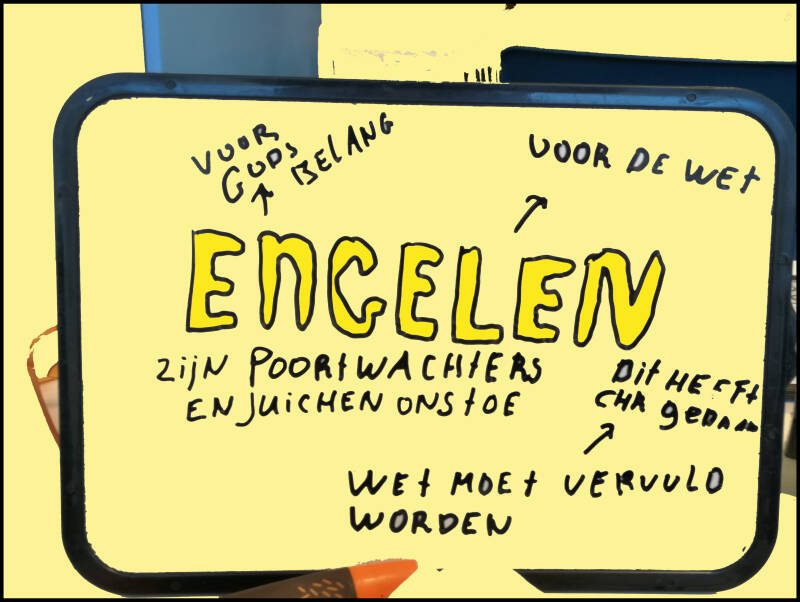 VOOR
GODS BELANG
VOOR DE WET
ENGELEN
ZIJN POORTWACHTERS
EN JUICHEN ONS TOE
DIT HEEFT
CHR GEDAAN
WET MOET VERVULD
WORDEN